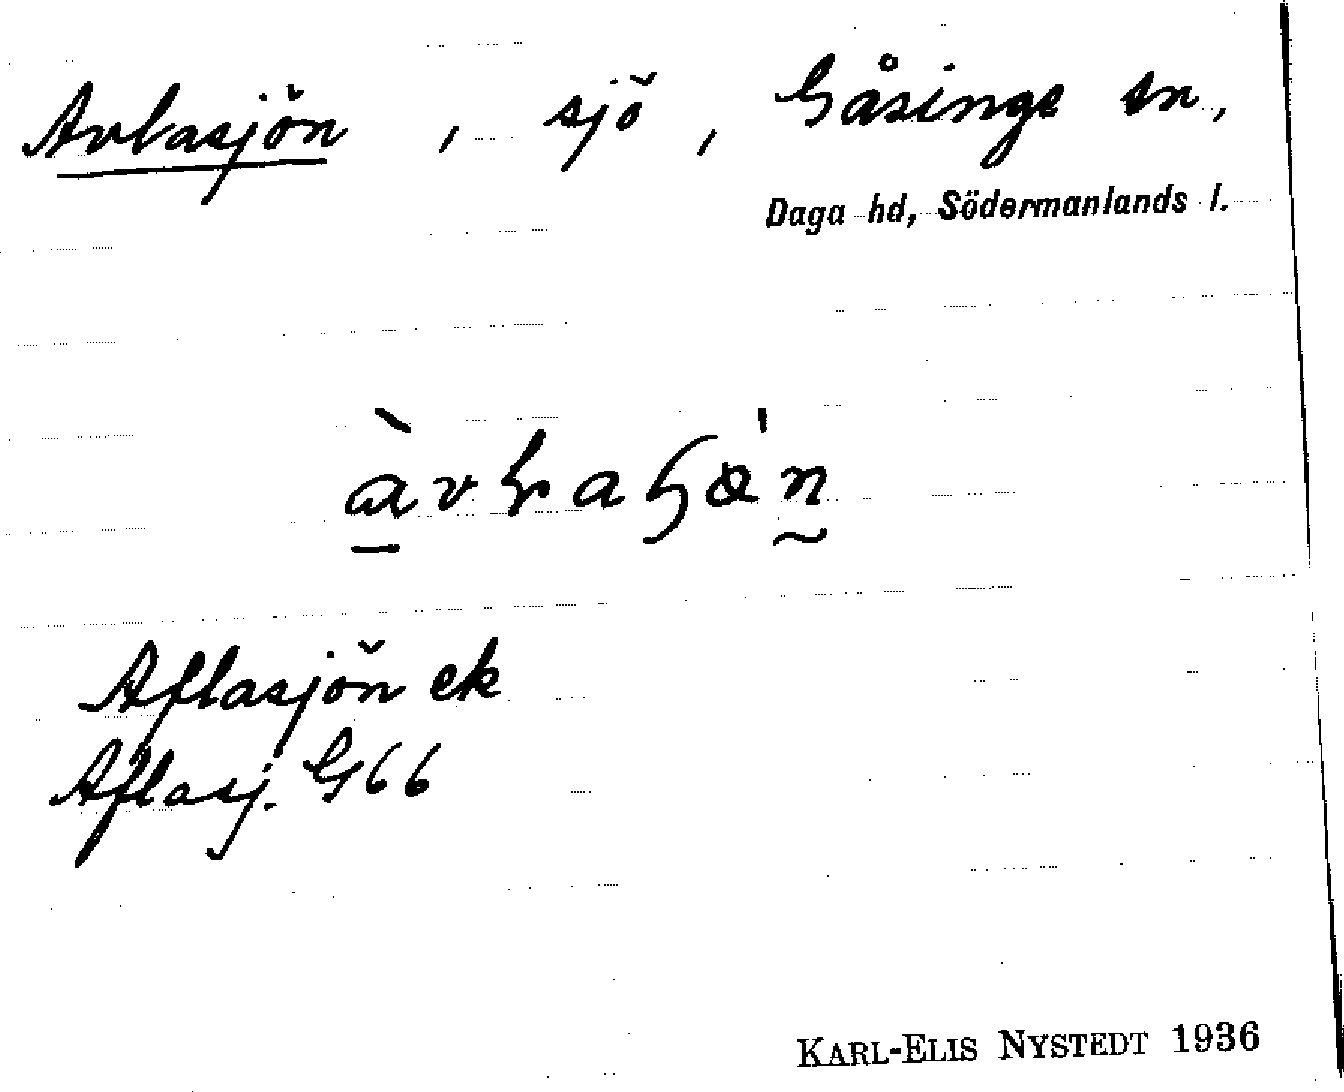 Avlasjön, sjö, Gåsinge sn,
Daga hd, Södermanlands l.
Aflasjön ek
Aflasj. G66
KARL-ELIS NYSTEDT 1936